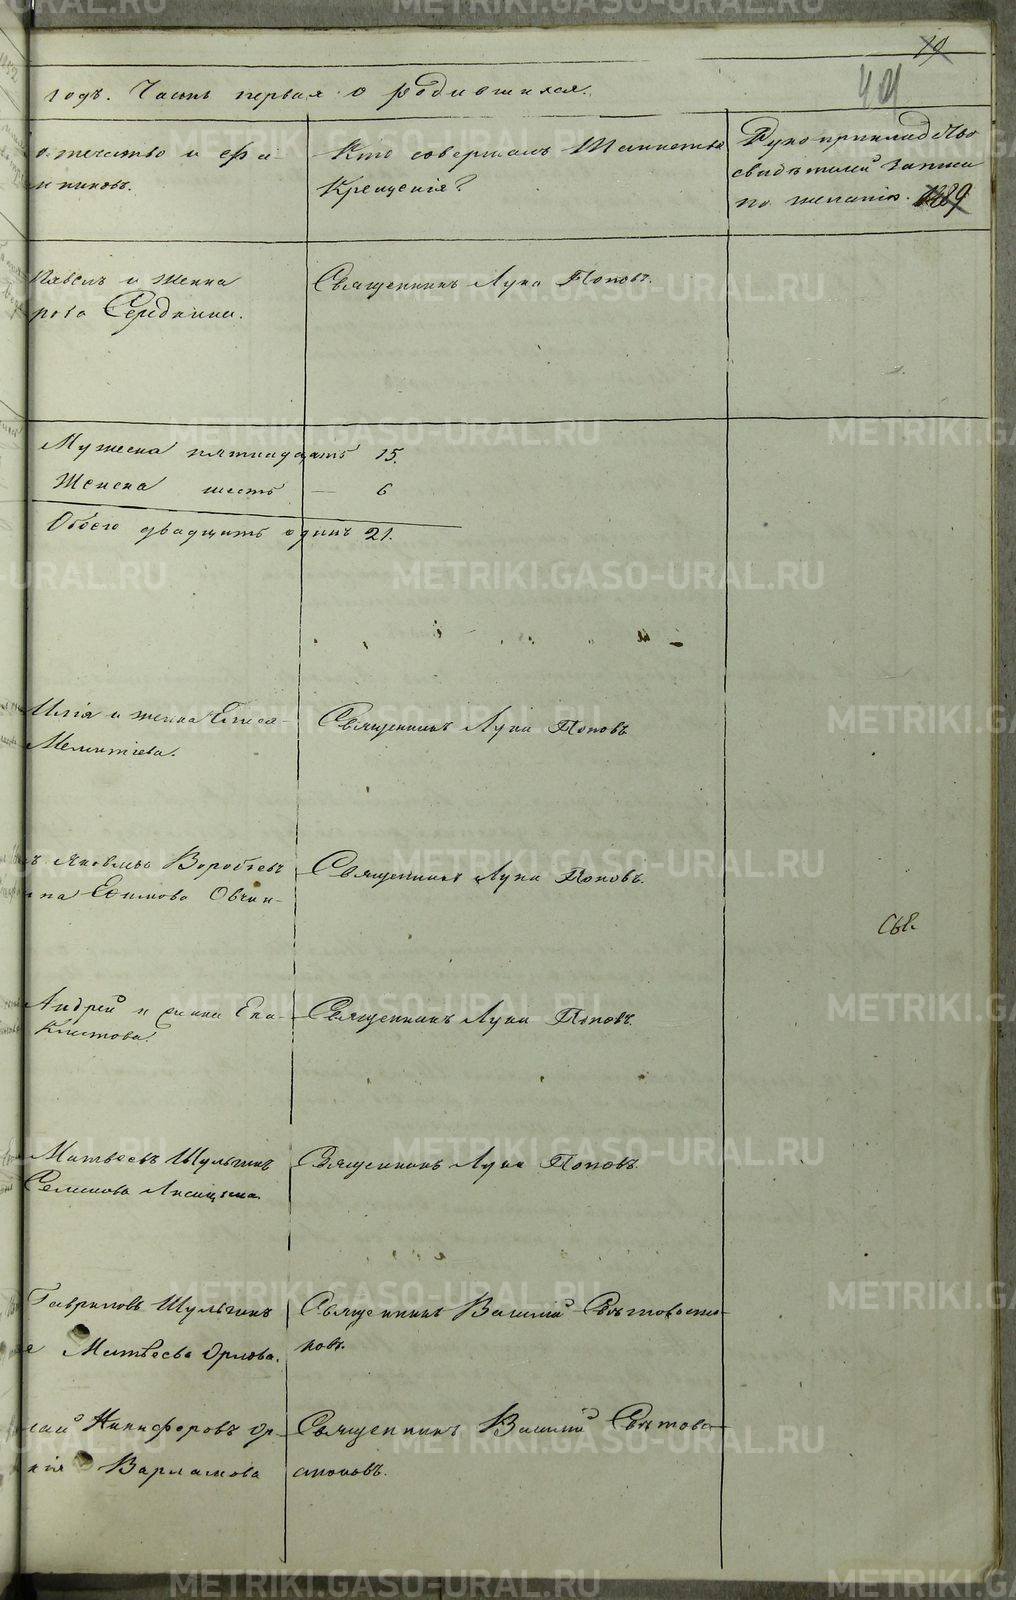 годъ. Часть первая о родившихся.
отчество и фа-
Кто совершалъ Таинство
Крещенія?
Рукоприкладство
свидѣтелей записи
по желанію.
Павелъ и жена
Середкины.
Священникъ Лука Поповъ.
Мужеска пятнадцать 15.
Женска шесть — 6
Обоего двадцать одинъ 21.
Илія и жена
Мелентіева.
Священникъ Лука Поповъ
Яковлевъ Воробьевъ
Ефимова Овчин-
Священникъ Лука Поповъ.
Андрей и жена Ека-
Священникъ Лука Поповъ.
Матвѣевъ Шульгинъ
Семенова Лисицына.
Священникъ Лука Поповъ
Гавриловъ Шульгинъ
Матвѣева Орлова.
Священникъ Василій
Никифоровъ Ор-
кія Варламова
Священникъ Василій
METRIKI.GASO-URAL.RU